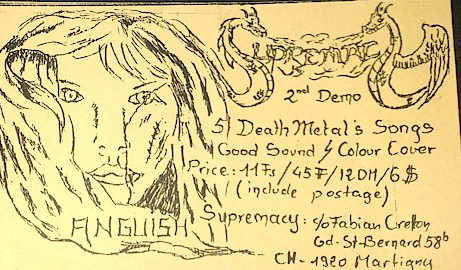 SUPREMACY
2nd Demo
5 Death Metal's Songs
Good Sound & Colour Cover
Price: 11Fs/45F/12DM/6$
(include postage)
ANGUISH
Supremacy: c/o Fabian Cretton
Gd-St-Bernard 58b
CH-1920 Martigny